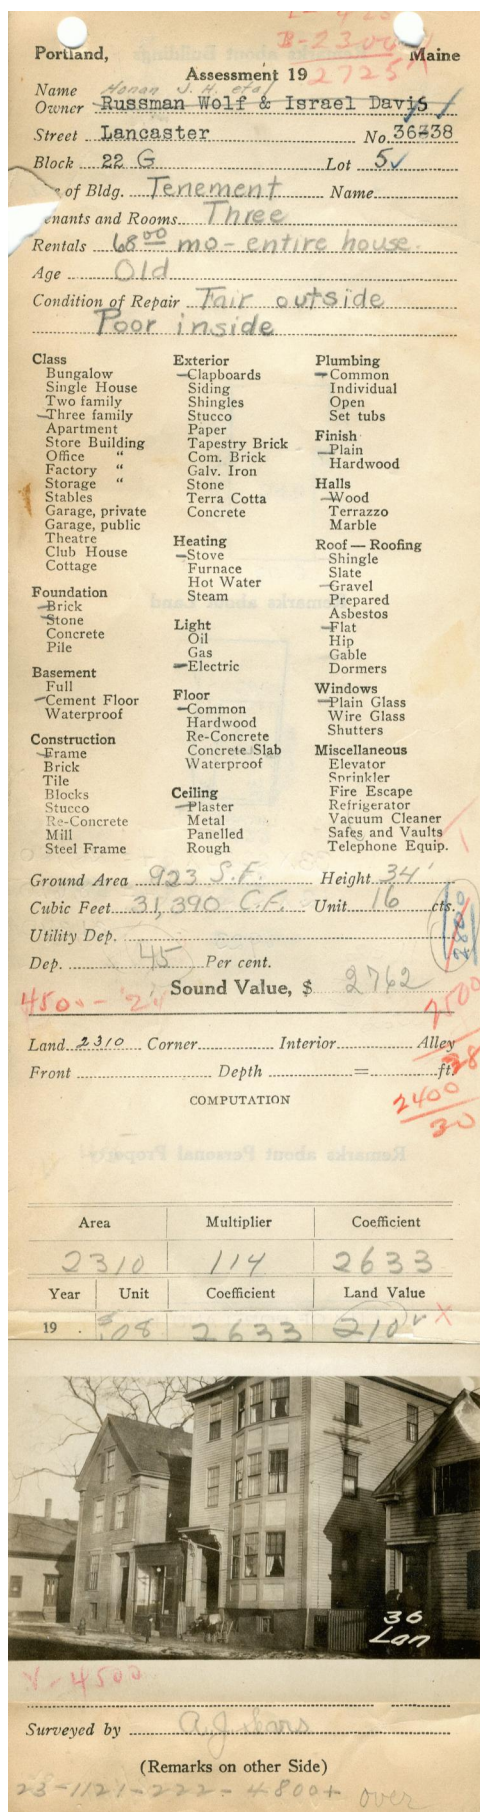 B-2300
2725
Portland, Maine
Assessment 19
Name Honan J. H. etal
Owner Russman Wolf & Israel Davis
Street Lancaster No. 36-38
Block 22 G Lot 5
e of Bldg. Tenement Name
enants and Rooms Three
Rentals 68.00 mo - entire house.
Age Old
Condition of Repair Fair outside
Poor inside
Class
Bungalow
Single House
Two family
Three family
Apartment
Store Building
Office "
Factory "
Storage "
Stables
Garage, private
Garage, public
Theatre
Club House
Cottage
Foundation
Brick
Stone
Concrete
Pile
Basement
Full
Cement Floor
Waterproof
Construction
Frame
Brick
Tile
Blocks
Stucco
Re-Concrete
Mill
Steel Frame
Exterior
Clapboards
Siding
Shingles
Stucco
Paper
Tapestry Brick
Com. Brick
Galv. Iron
Stone
Terra Cotta
Concrete
Heating
Stove
Furnace
Hot Water
Steam
Light
Oil
Gas
Electric
Floor
Common
Hardwood
Re-Concrete
Concrete Slab
Waterproof
Ceiling
Plaster
Metal
Panelled
Rough
Plumbing
Common
Individual
Open
Set tubs
Finish
Plain
Hardwood
Halls
Wood
Terrazzo
Marble
Roof — Roofing
Shingle
Slate
Gravel
Prepared
Asbestos
Flat
Hip
Gable
Dormers
Windows
Plain Glass
Wire Glass
Shutters
Miscellaneous
Elevator
Sprinkler
Fire Escape
Refrigerator
Vacuum Cleaner
Safes and Vaults
Telephone Equip.
Ground Area 923 S.F. Height 34'
Cubic Feet 31,390 C.F. Unit 16 cts.
2800
Utility Dep.
Dep. 45 Per cent.
Sound Value, $ 2762
2500
28
Land 2310 Corner Interior Alley
Front Depth = ft.
2400
30
COMPUTATION
Area Multiplier Coefficient
2310 114 2633
Year Unit Coefficient Land Value
19 $.08 2633 210
36
Lan
4500
Surveyed by
(Remarks on other Side)
23-1121-222-4800+ over